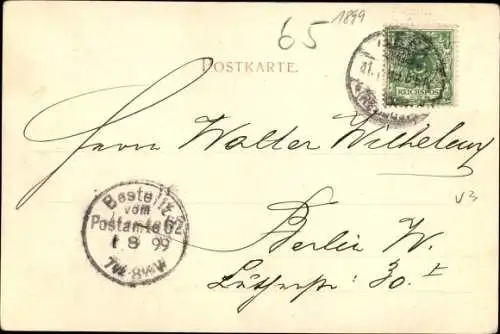 65
1899
POSTKARTE.
REICHSPOST
Herrn Walter Wilhelmy
Bestellt
vom
Postamte 62
1 8 99
7¼-8½V
Berlin W.
Lutherstr: 30.I